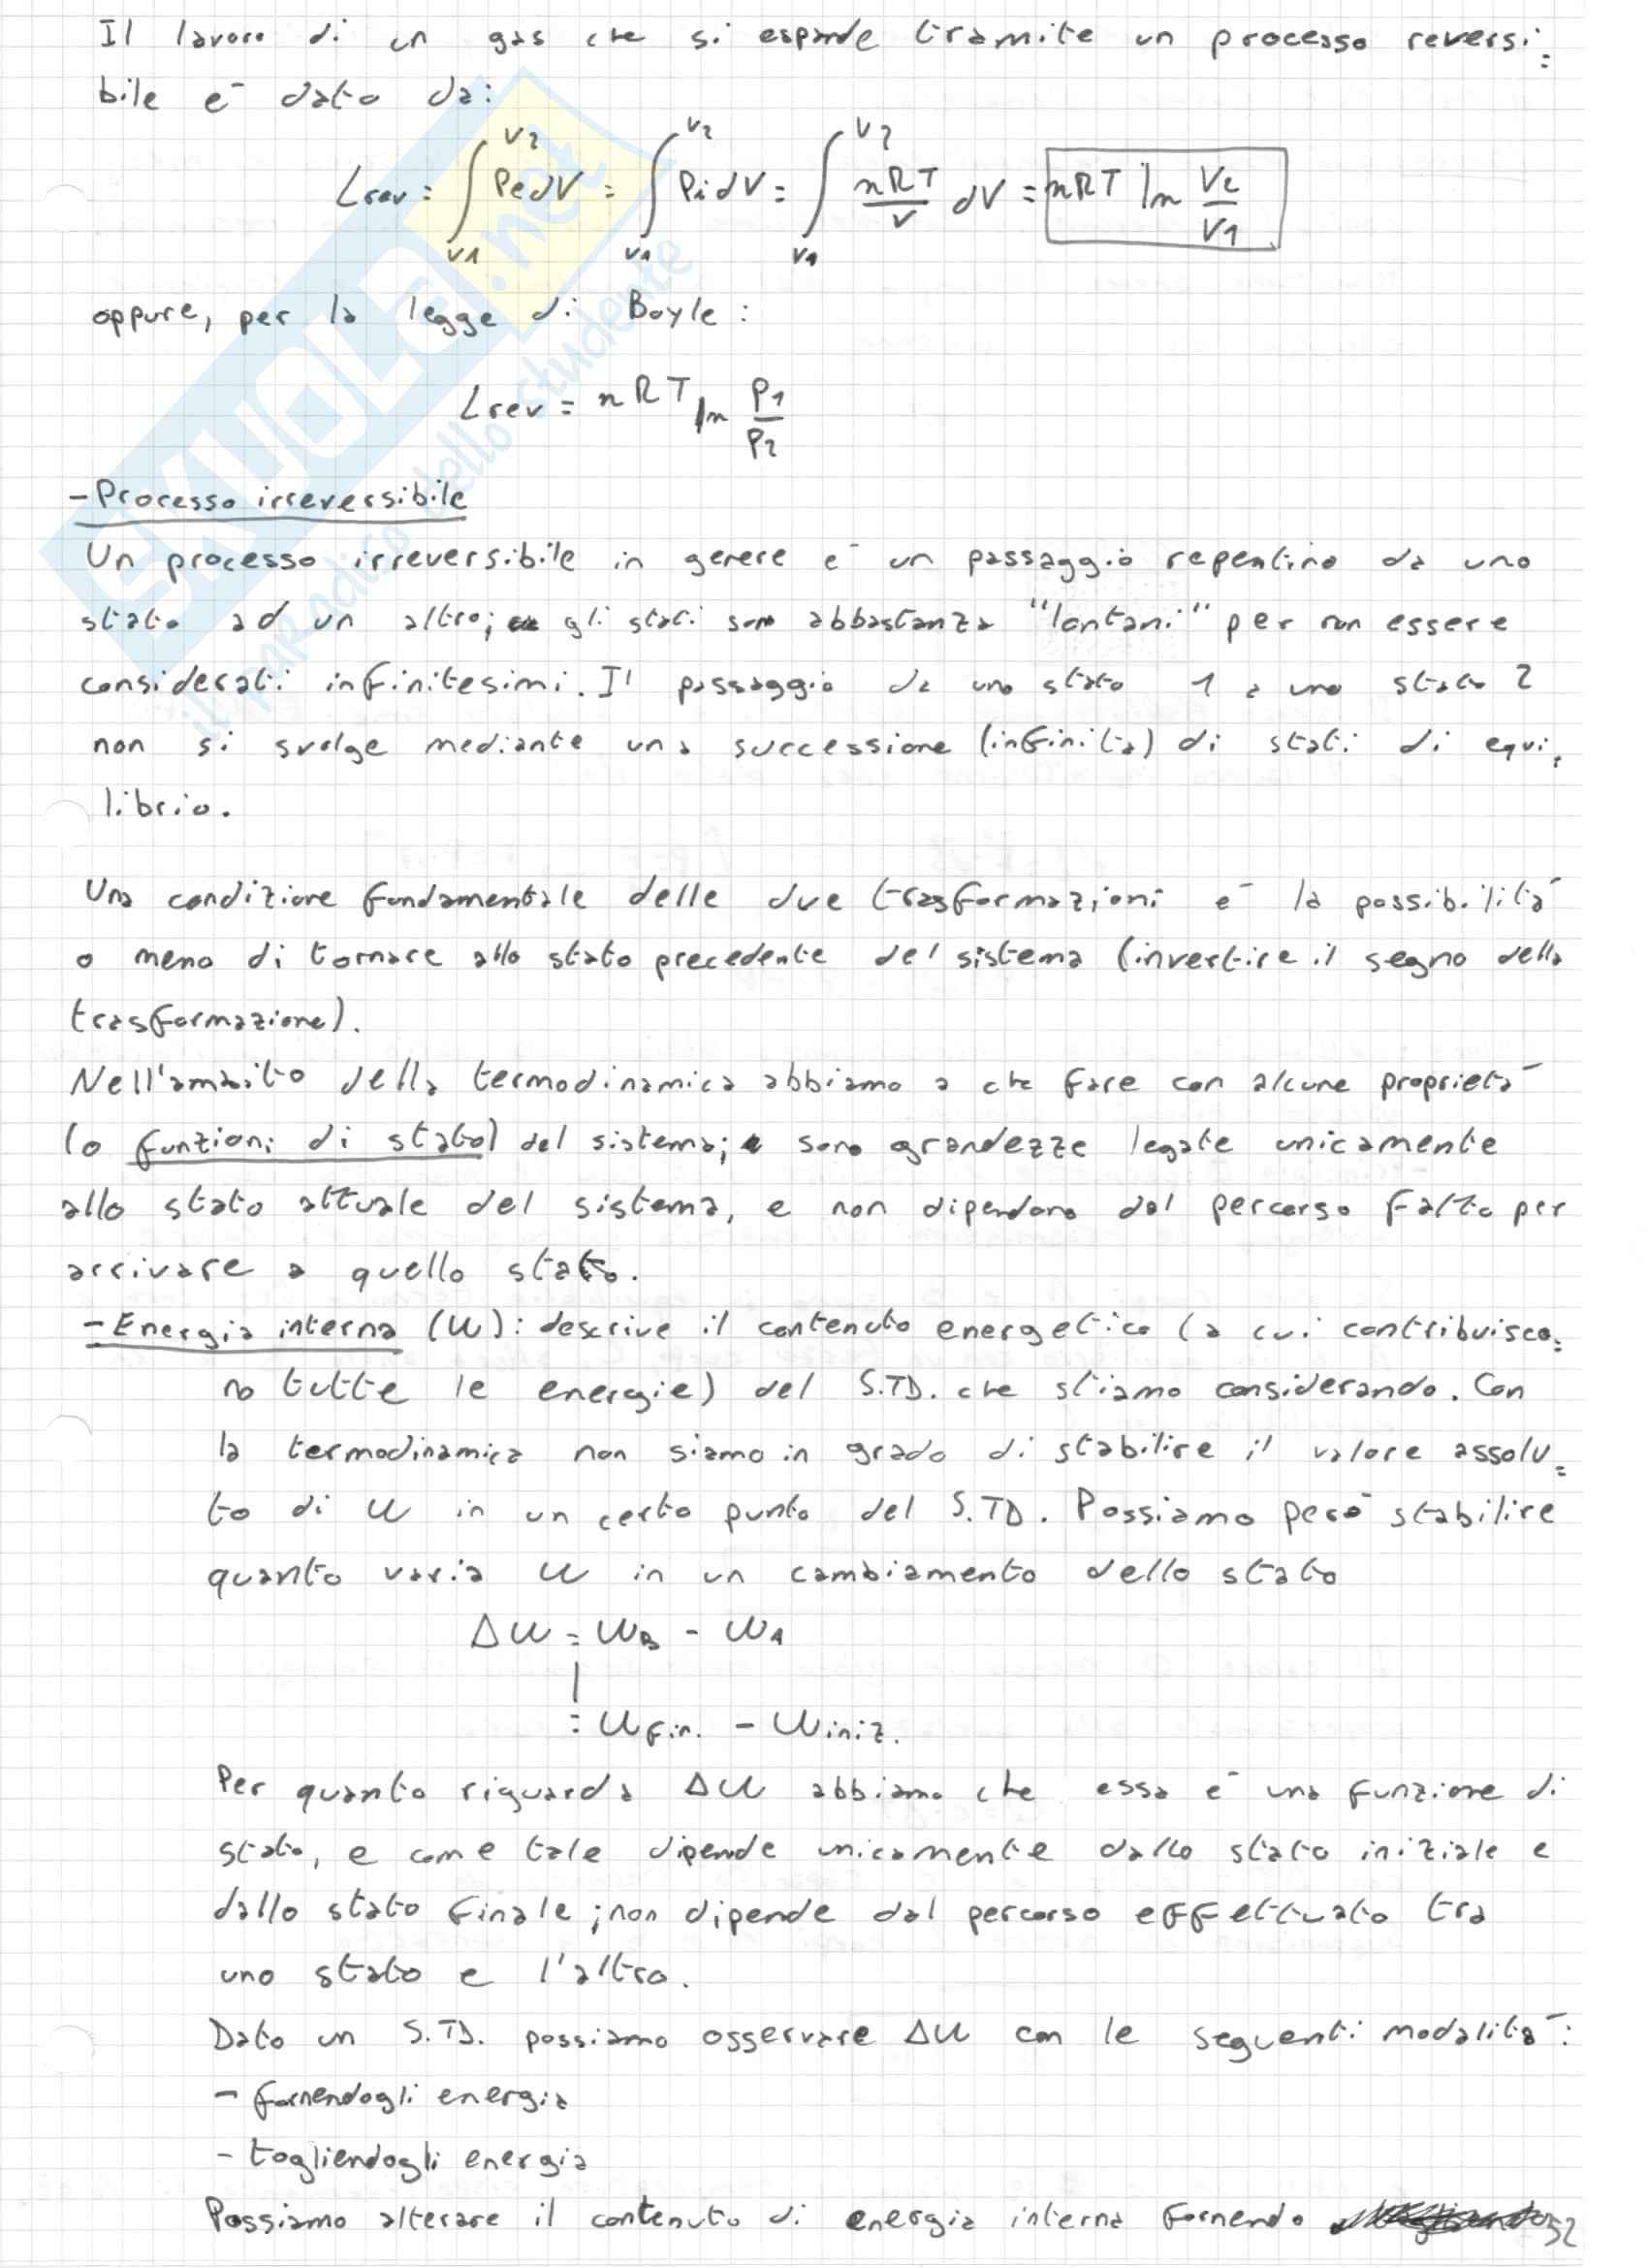 Il lavoro di un gas che si espande tramite un processo reversi=
bile è dato da:
Lrev = ∫V1 V2 Pe dV = ∫V1 V2 Pi dV = ∫V1 V2 nRT/V dV = nRT ln V2/V1
oppure, per la legge di Boyle:
Lrev = nRT ln P1/P2
- Processo irreversibile
Un processo irreversibile in genere è un passaggio repentino da uno
stato ad un altro; gli stati sono abbastanza "lontani" per non essere
considerati infinitesimi. Il passaggio da uno stato 1 a uno stato 2
non si svolge mediante una successione (infinita) di stati di equi=
librio.
Una condizione fondamentale delle due trasformazioni è la possibilità
o meno di tornare allo stato precedente del sistema (invertire il segno della
trasformazione).
Nell'ambito della termodinamica abbiamo a che fare con alcune proprietà
(o funzioni di stato) del sistema; sono grandezze legate unicamente
allo stato attuale del sistema, e non dipendono dal percorso fatto per
arrivare a quello stato.
- Energia interna (U): descrive il contenuto energetico (a cui contribuisco=
no tutte le energie) del S.TD. che stiamo considerando. Con
la termodinamica non siamo in grado di stabilire il valore assolu=
to di U in un certo punto del S.TD. Possiamo però stabilire
quanto varia U in un cambiamento dello stato
ΔU = UB - UA
= Ufin. - Uiniz.
Per quanto riguarda ΔU abbiamo che essa è una funzione di
stato, e come tale dipende unicamente dallo stato iniziale e
dallo stato finale; non dipende dal percorso effettuato tra
uno stato e l'altro.
Dato un S.TD. possiamo osservare ΔU con le seguenti modalità:
- fornendogli energia
- togliendogli energia
Possiamo alterare il contenuto di energia interna fornendo
52
SKUOLA.net
il paradiso dello studente